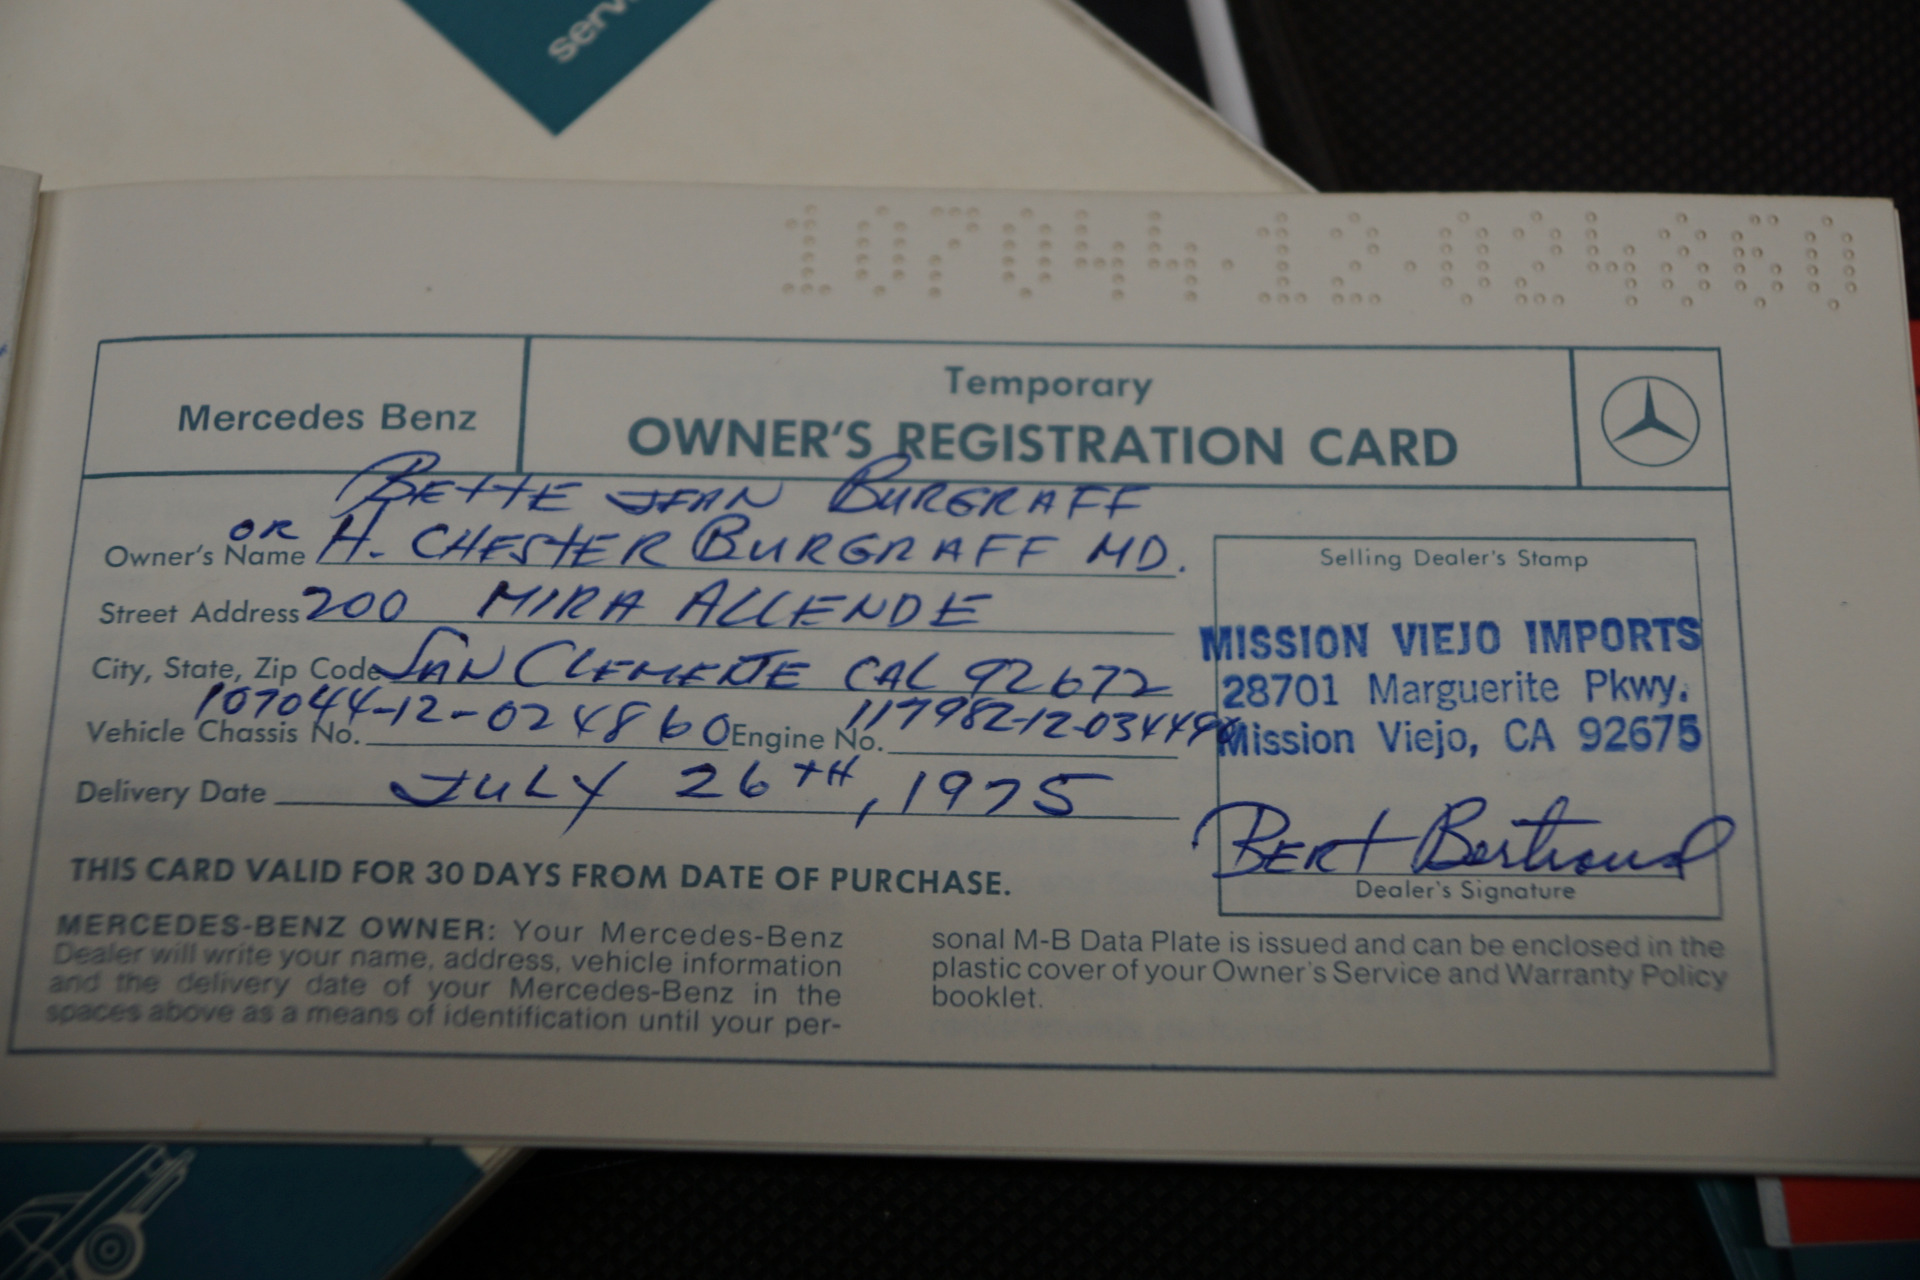 serv
107044-12-024860
Mercedes Benz
Temporary
OWNER'S REGISTRATION CARD
BETTE JEAN BURGRAFF
OR
Owner's Name H. CHESTER BURGRAFF MD.
Street Address 200 MIRA ALLENDE
City, State, Zip Code SAN CLEMENTE CAL 92672
Vehicle Chassis No. 107044-12-024860 Engine No. 117982-12-034490
Delivery Date JULY 26TH, 1975
Selling Dealer's Stamp
MISSION VIEJO IMPORTS
28701 Marguerite Pkwy.
Mission Viejo, CA 92675
Bert Bertrand
Dealer's Signature
THIS CARD VALID FOR 30 DAYS FROM DATE OF PURCHASE.
MERCEDES-BENZ OWNER: Your Mercedes-Benz
Dealer will write your name, address, vehicle information
and the delivery date of your Mercedes-Benz in the
spaces above as a means of identification until your per-
sonal M-B Data Plate is issued and can be enclosed in the
plastic cover of your Owner's Service and Warranty Policy
booklet.